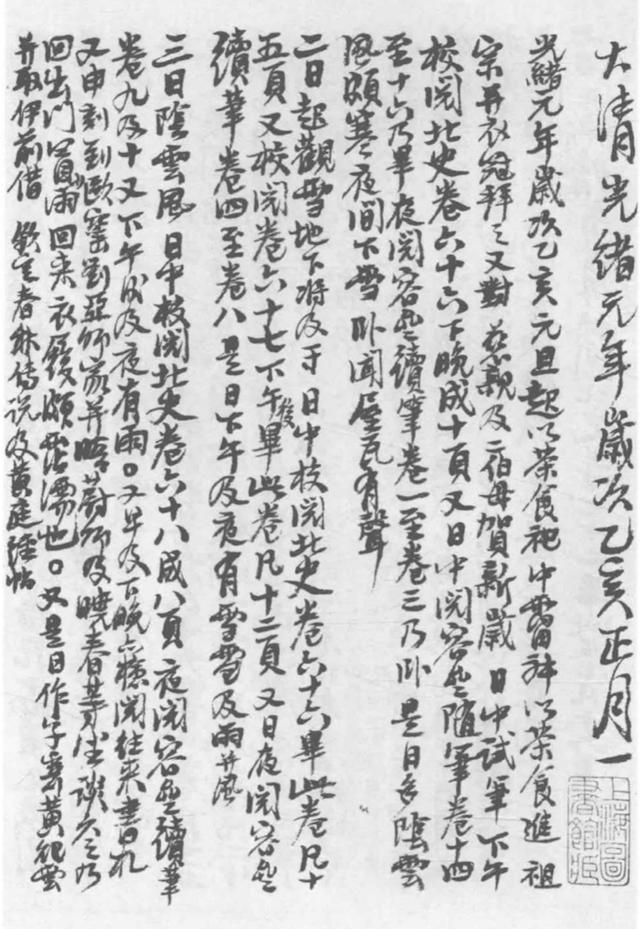 大清光緒元年歲次乙亥正月一
光緒元年歲次乙亥元旦起以茶食祀中霤神以茶食進祖
宗并衣冠拜之又對慈親及二伯母賀新歲日中試筆下午
校閱北史卷六十六下晚成十頁又日中閱容齋隨筆卷十四
至十六乃畢夜閱容齋續筆卷一至卷三乃卧是日多陰雲
風頗寒夜間下雪卧聞屋瓦有聲
二日起觀雪地下將及寸日中校閱北史卷六十六畢此卷凡十
五頁又校閱卷六十七下午後畢此卷凡十二頁又日夜閱容齋
續筆卷四至卷八是日下午及夜有雪雪及雨并風
三日陰雲風日中校閱北史卷六十八成八頁夜閱容齋續筆
卷九及十又下午後及夜有雨又早及下晚亦檢閱往來書札
又申刻到歐窯劉亞師家并晤蔚師及曉春等坐談久之乃
回出門冒雨回來衣履頗霑濡也又是日作字寄黃祀雲
并取伊前借欽定春秋傳說及黃庭經帖
上海圖書館藏